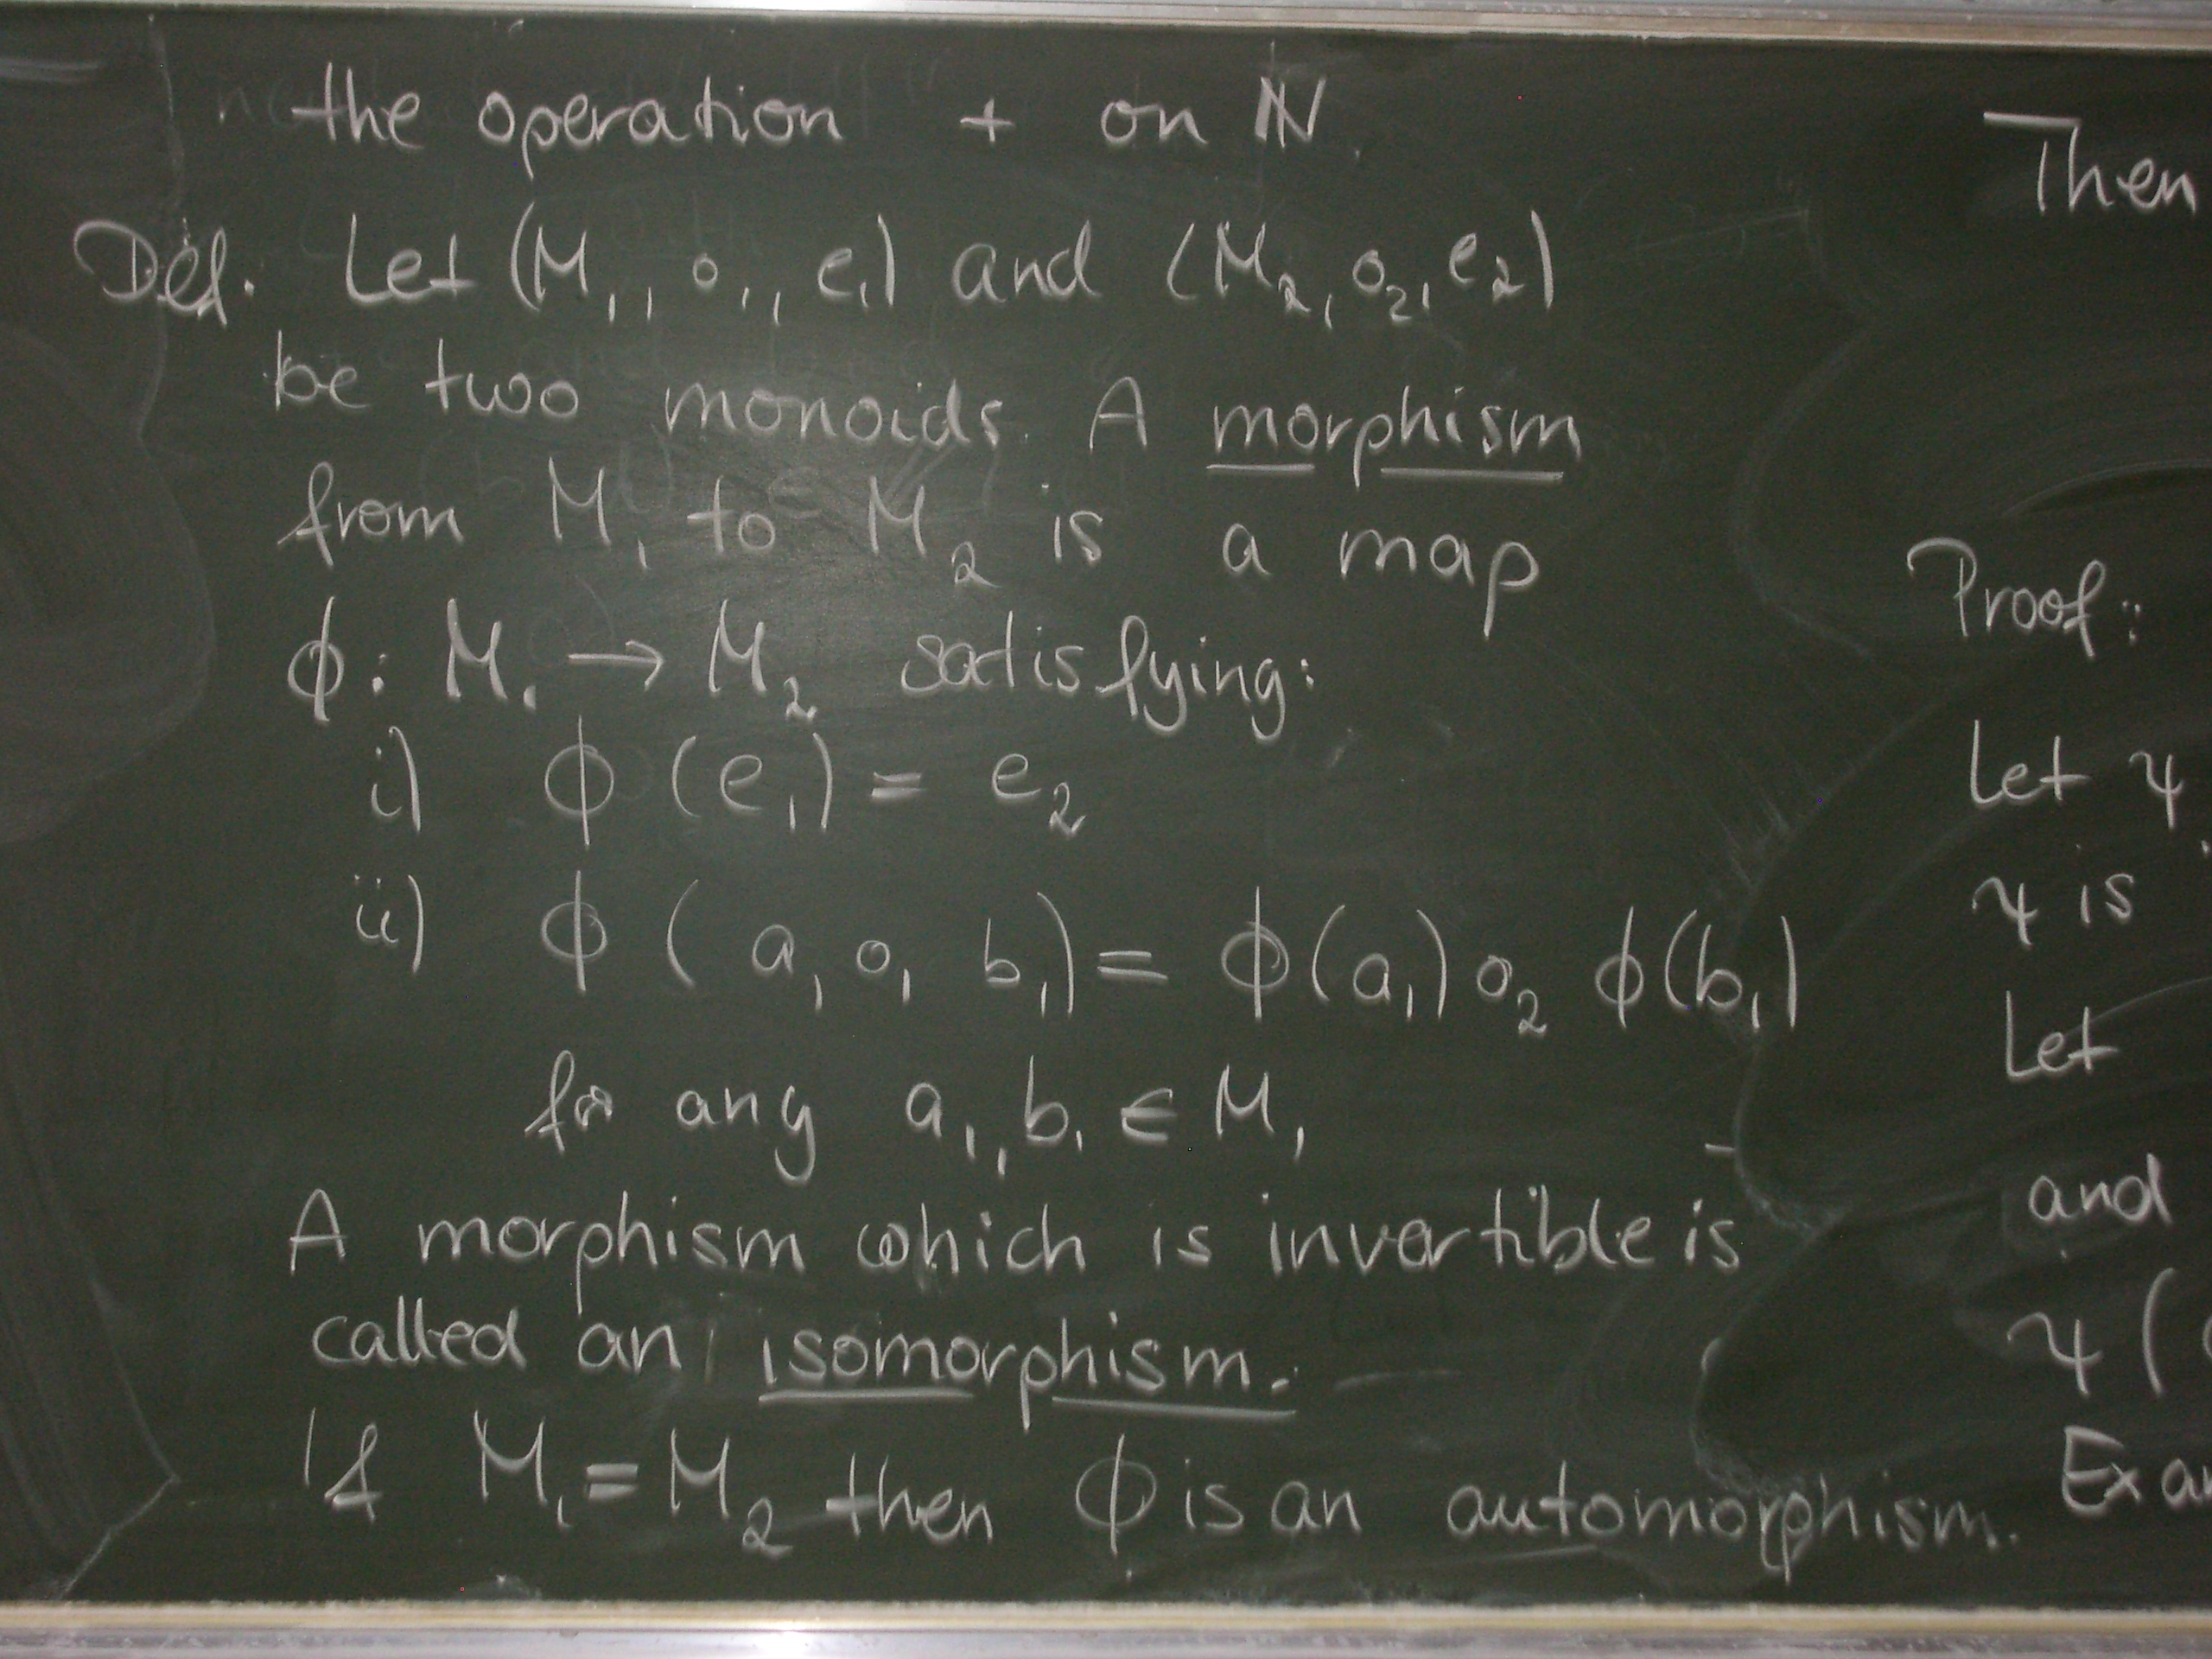 the operation + on ℕ.
Def. Let (M₁, ∘₁, e₁) and (M₂, ∘₂, e₂)
be two monoids. A morphism
from M₁ to M₂ is a map
ϕ: M₁ → M₂ satisfying:
i) ϕ (e₁) = e₂
ii) ϕ ( a₁ ∘₁ b₁) = ϕ(a₁) ∘₂ ϕ(b₁)
for any a₁, b₁ ∈ M₁
A morphism which is invertible is
called an isomorphism.
If M₁ = M₂ then ϕ is an automorphism.
Then
Proof:
Let ψ
ψ is
Let
and
ψ (